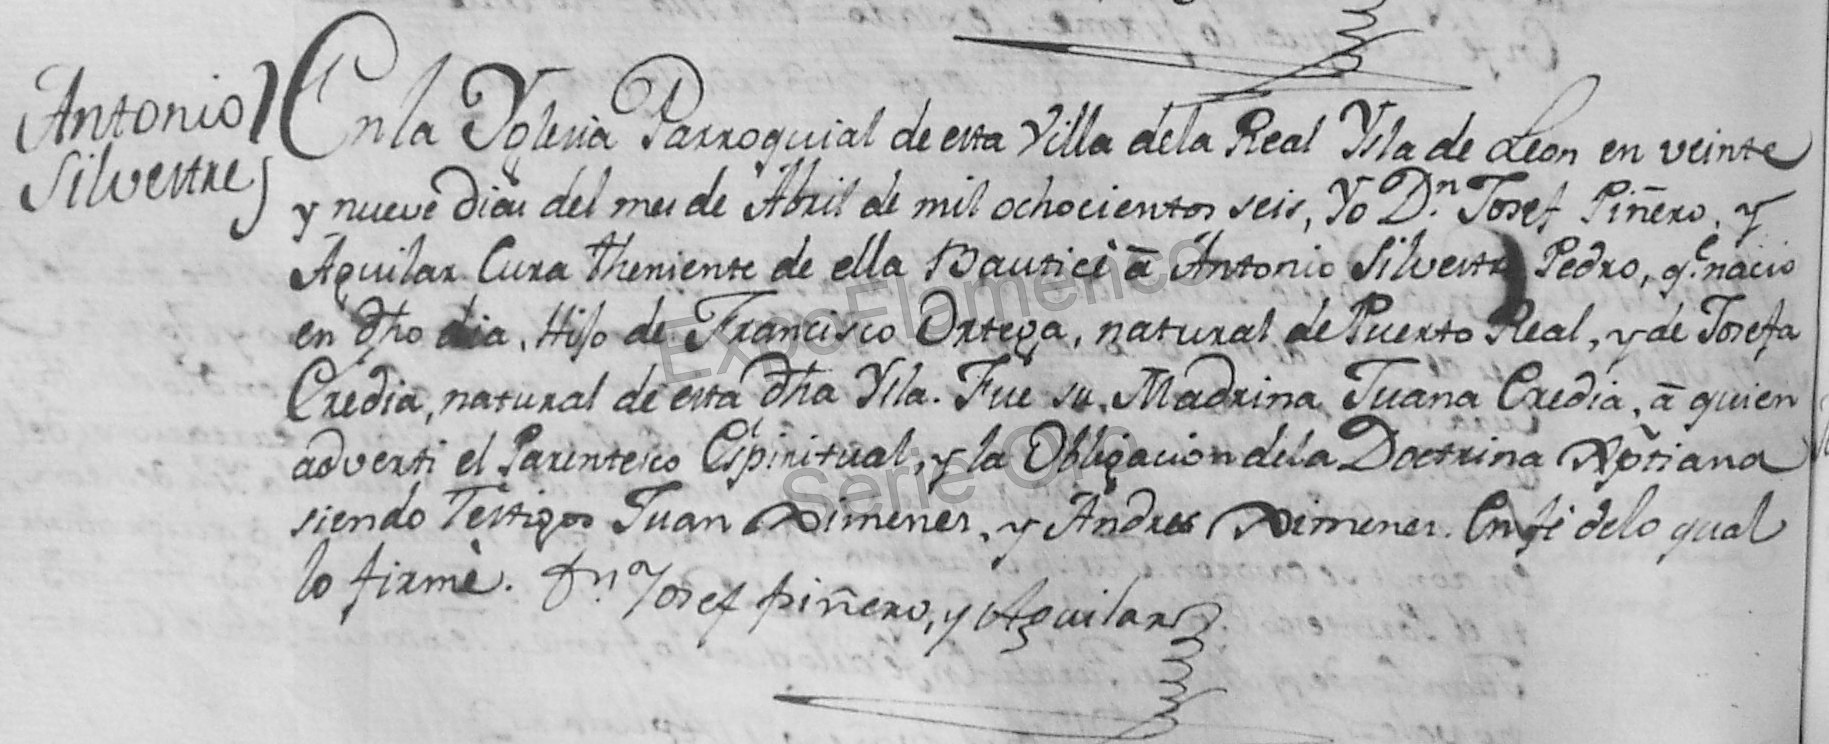 Antonio
Silvestre
En la Yglesia Parroquial de esta Villa dela Real Ysla de Leon en veinte
y nueve dias del mes de Abril de mil ochocientos seis, Yo Dn. Josef Piñero, y
Aguilar Cura theniente de ella Bauticé â Antonio Silvestre Pedro, q.e nacio
en dho dia, Hijo de Francisco Ortega, natural de Puerto Real, y de Josefa
Credia, natural de esta dha Ysla. Fue su Madrina Juana Credia, â quien
adverti el Parentesco Espiritual, y la Obligacion dela Doctrina Xptiana
siendo Testigos Juan Ximenes, y Andres Ximenes. En fe delo qual
lo firmè. Dn. Josef Piñero, y Aguilar
ExpoFlamenco
Serie Oro